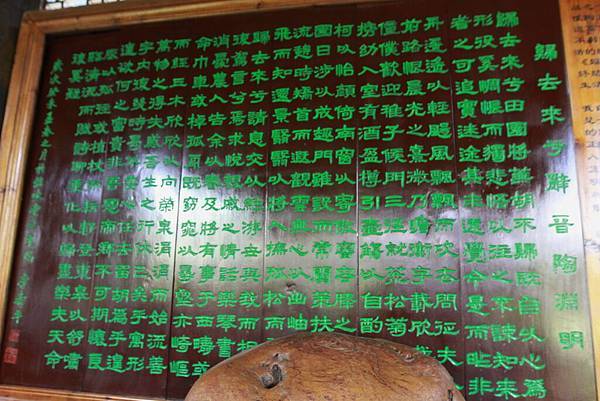 歸去來兮辭 晉 陶淵明
歸去來兮田園將蕪胡不歸既自以心為
形役奚惆悵而獨悲悟已往之不諫知來
者之可追實迷途其未遠覺今是而昨非
舟遙遙以輕颺風飄飄而吹衣問征夫以
前路恨晨光之熹微乃瞻衡宇載欣載奔
僮僕歡迎稚子候門三徑就荒松菊猶存
攜幼入室有酒盈樽引壺觴以自酌眄庭
柯以怡顏倚南窗以寄傲審容膝之易安
園日涉以成趣門雖設而常關策扶老以
流憩時矯首而遐觀雲無心以出岫鳥倦
飛而知還景翳翳以將入撫孤松而盤桓
歸去來兮請息交以絕遊世與我而相違
復駕言兮焉求悅親戚之情話樂琴書以
消憂農人告余以春及將有事于西疇或
命巾車或棹孤舟既窈窕以尋壑亦崎嶇
而經丘木欣欣以向榮泉涓涓而始流善
萬物之得時感吾生之行休已矣乎寓形
宇內復幾時曷不委心任去留胡為乎遑
遑欲何之富貴非吾願帝鄉不可期懷良
辰以孤往或植杖而耘耔登東皋以舒嘯
臨清流而賦詩聊乘化以歸盡樂夫天命
復奚疑